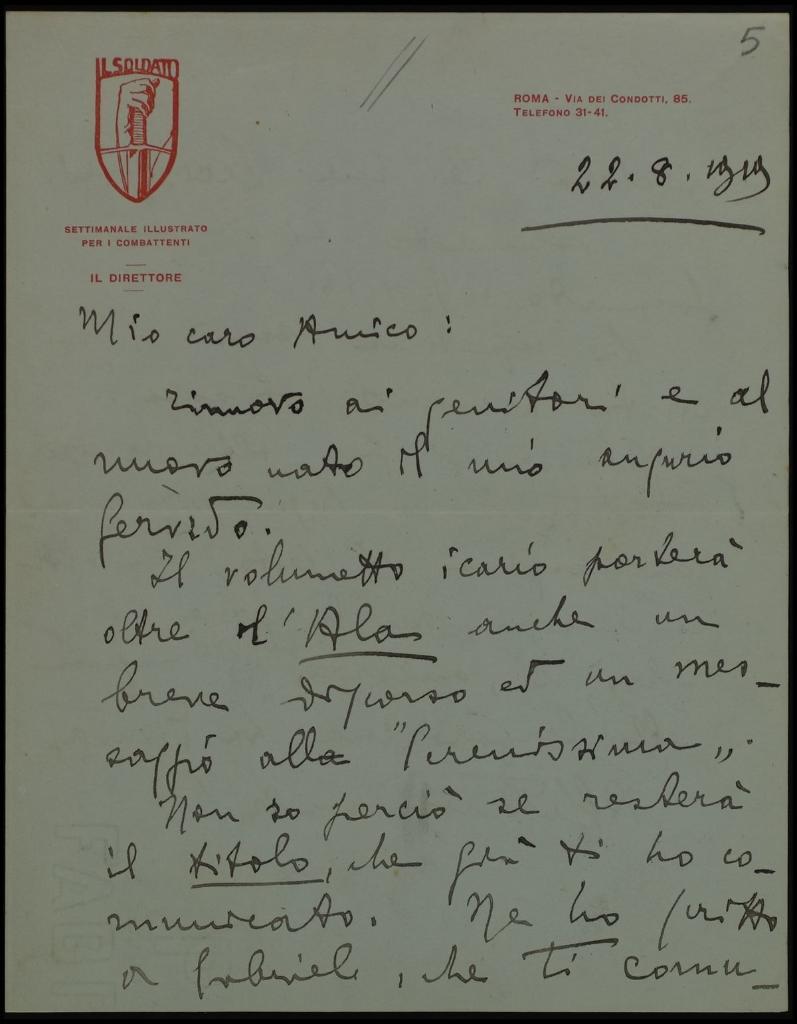 5
IL SOLDATO
ROMA - VIA DEI CONDOTTI, 85.
TELEFONO 31-41.
22. 8. 1919
SETTIMANALE ILLUSTRATO
PER I COMBATTENTI
IL DIRETTORE
Mio caro Amico:
rinnovo ai genitori e al
nuovo nato il mio augurio
fervido.
Il volumetto icario porterà
oltre l'Ala anche un
breve discorso ed un mes-
saggio alla "Serenissima„.
Non so perciò se resterà
il titolo, che già ti ho co-
municato. Ne ho scritto
a Gabriele, che ti comu-